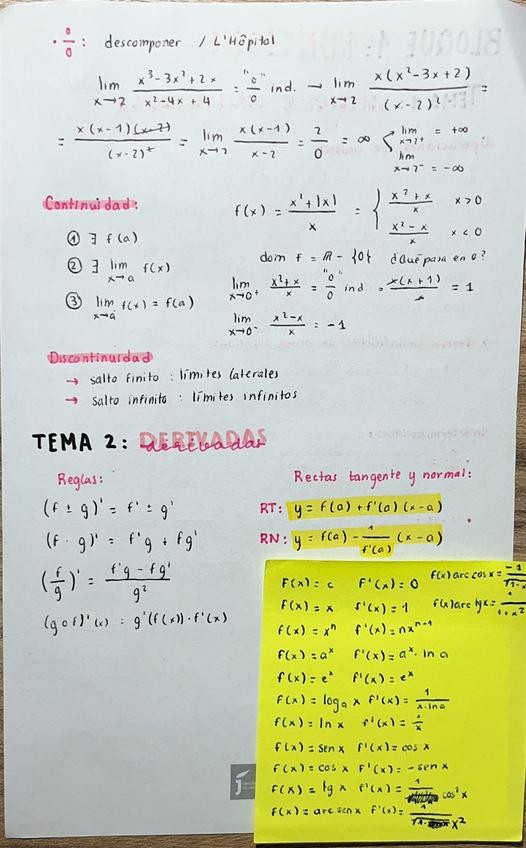 · 0/0 : descomponer / L'Hôpital
lim x→2 x³-3x²+2x / x²-4x+4 = "0"/0 ind. → lim x→2 x(x²-3x+2) / (x-2)² =
= x(x-1)(x-2) / (x-2)² = lim x→2 x(x-1) / x-2 = 2/0 = ∞ < lim x→2⁺ = +∞
lim x→2⁻ = -∞
Continuidad:
① ∃ f(a)
② ∃ lim x→a f(x)
③ lim x→a f(x) = f(a)
f(x) = x²+|x| / x = { x²+x / x x>0
x²-x / x x<0
dom f = ℝ - {0} ¿Qué pasa en 0?
lim x→0⁺ x²+x / x = "0"/0 ind. = x(x+1) / x = 1
lim x→0⁻ x²-x / x = -1
Discontinuidad
→ salto finito : límites laterales
→ salto infinito : límites infinitos
TEMA 2: DERIVADAS
derivadas
Reglas:
(f ± g)' = f' ± g'
(f · g)' = f'g + fg'
(f/g)' = f'g - fg' / g²
(g o f)'(x) = g'(f(x)) · f'(x)
Rectas tangente y normal:
RT: y = f(a) + f'(a) (x-a)
RN: y = f(a) - 1/f'(a) (x-a)
F(x) = c F'(x) = 0 F(x) arc cos x = -1/√1-x²
F(x) = x f'(x) = 1 f(x) arc tg x = 1/1+x²
f(x) = xⁿ f'(x) = nxⁿ⁻¹
f(x) = aˣ f'(x) = aˣ · ln a
f(x) = eˣ f'(x) = eˣ
f(x) = logₐ x f'(x) = 1/x·ln a
f(x) = ln x f'(x) = 1/x
f(x) = sen x f'(x) = cos x
f(x) = cos x F'(x) = -sen x
f(x) = tg x f'(x) = 1/cos²x
f(x) = arc sen x f'(x) = 1/√1-x²